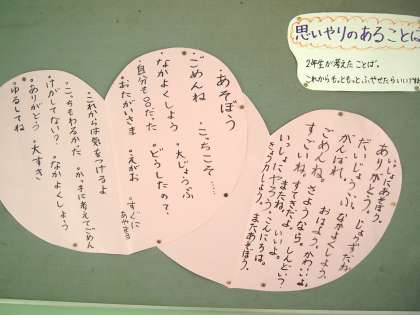 思いやりのあることば
2年生が考えたことば。
これからも、もっと、もっと、ふやせたらいいですね
いっしょにあそぼう。
ありがとう。
だいじょうぶ。じょうずだね
がんばれ。なかよくしよう。
ごめんね。おはよう。
さようなら。かわいいよ。
すごいね。すてきだよ。しんどい?
いっしょにやろう。またね。いいよ。
きょう力しよう。こんにちは。
またあそぼう。
あそぼう
・こっちこそ……
ごめんね
・大じょうぶ
なかよくしよう
・どうしたの?
・自分も、
・おたがいさま
・えがお
・すぐにあやまる
・これからは気をつけるよ
・こっちもわるかった
・かっ手に考えてごめん
・けがしてない?
・なかよくしよう
・ありがとう
・大すき
・ゆるしてね